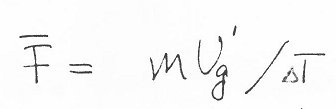 F̅ = mU'g/ΔT